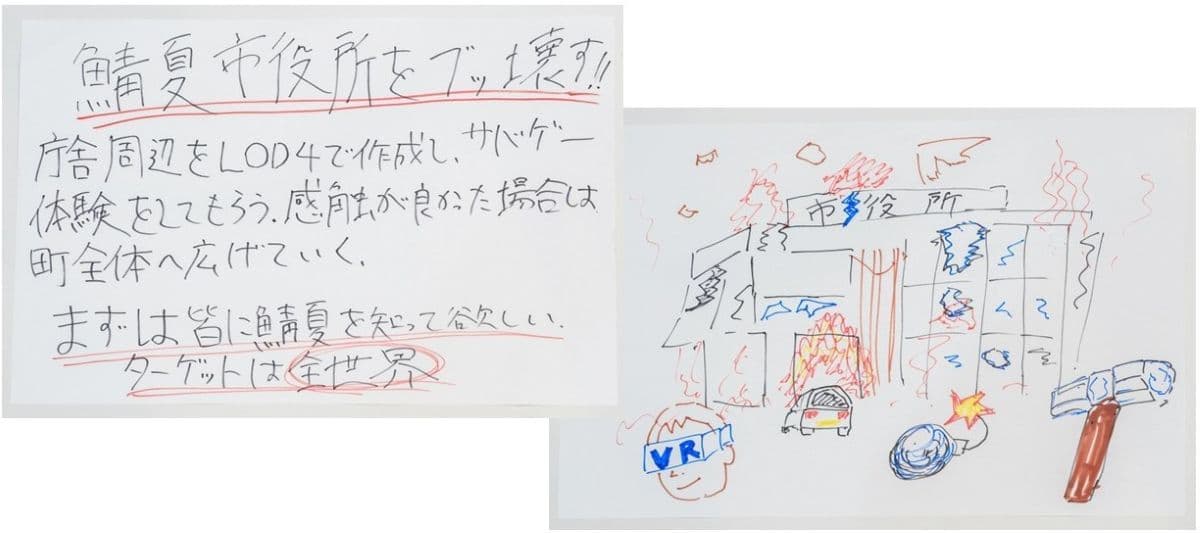 鯖夏市役所をブッ壊す!!
庁舎周辺をLOD4で作成し、サバゲー
体験をしてもらう。感触が良かった場合は
町全体へ広げていく。
まずは皆に鯖夏を知って欲しい。
ターゲットは全世界
市役所
VR